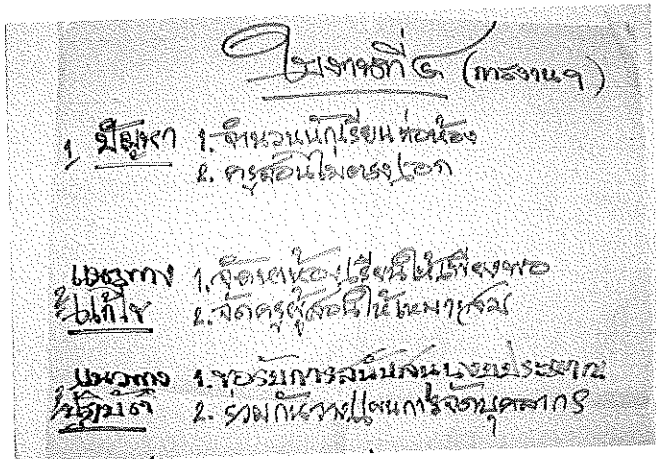 ใบงานที่ ๒ (การงานฯ)
1 ปัญหา 1. จำนวนนักเรียนต่อห้อง
2. ครูสอนไม่ตรงเอก
แนวทาง 1. จัดหาห้องเรียนให้เพียงพอ
2 แก้ไข 2. จัดครูผู้สอนให้เหมาะสม
แนวทาง 1. ขอรับการสนับสนุนงบประมาณ
ปฏิบัติ 2. ร่วมกันวางแผนการจัดบุคลากร